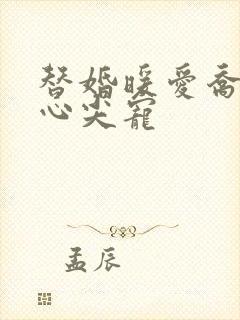 替婚暖爱乔
心尖宠
孟辰